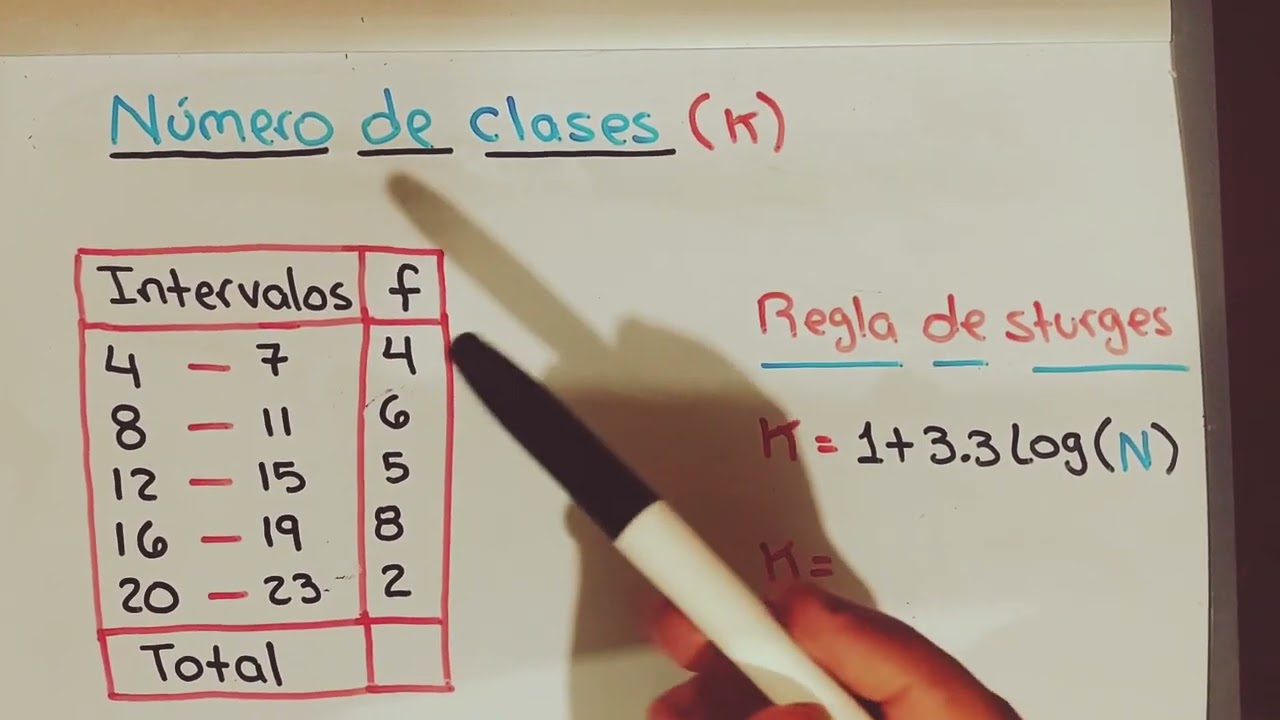 Número de clases (K)
Intervalos f
4 - 7 4
8 - 11 6
12 - 15 5
16 - 19 8
20 - 23 2
Total
Regla de sturges
K = 1+3.3log(N)
K =